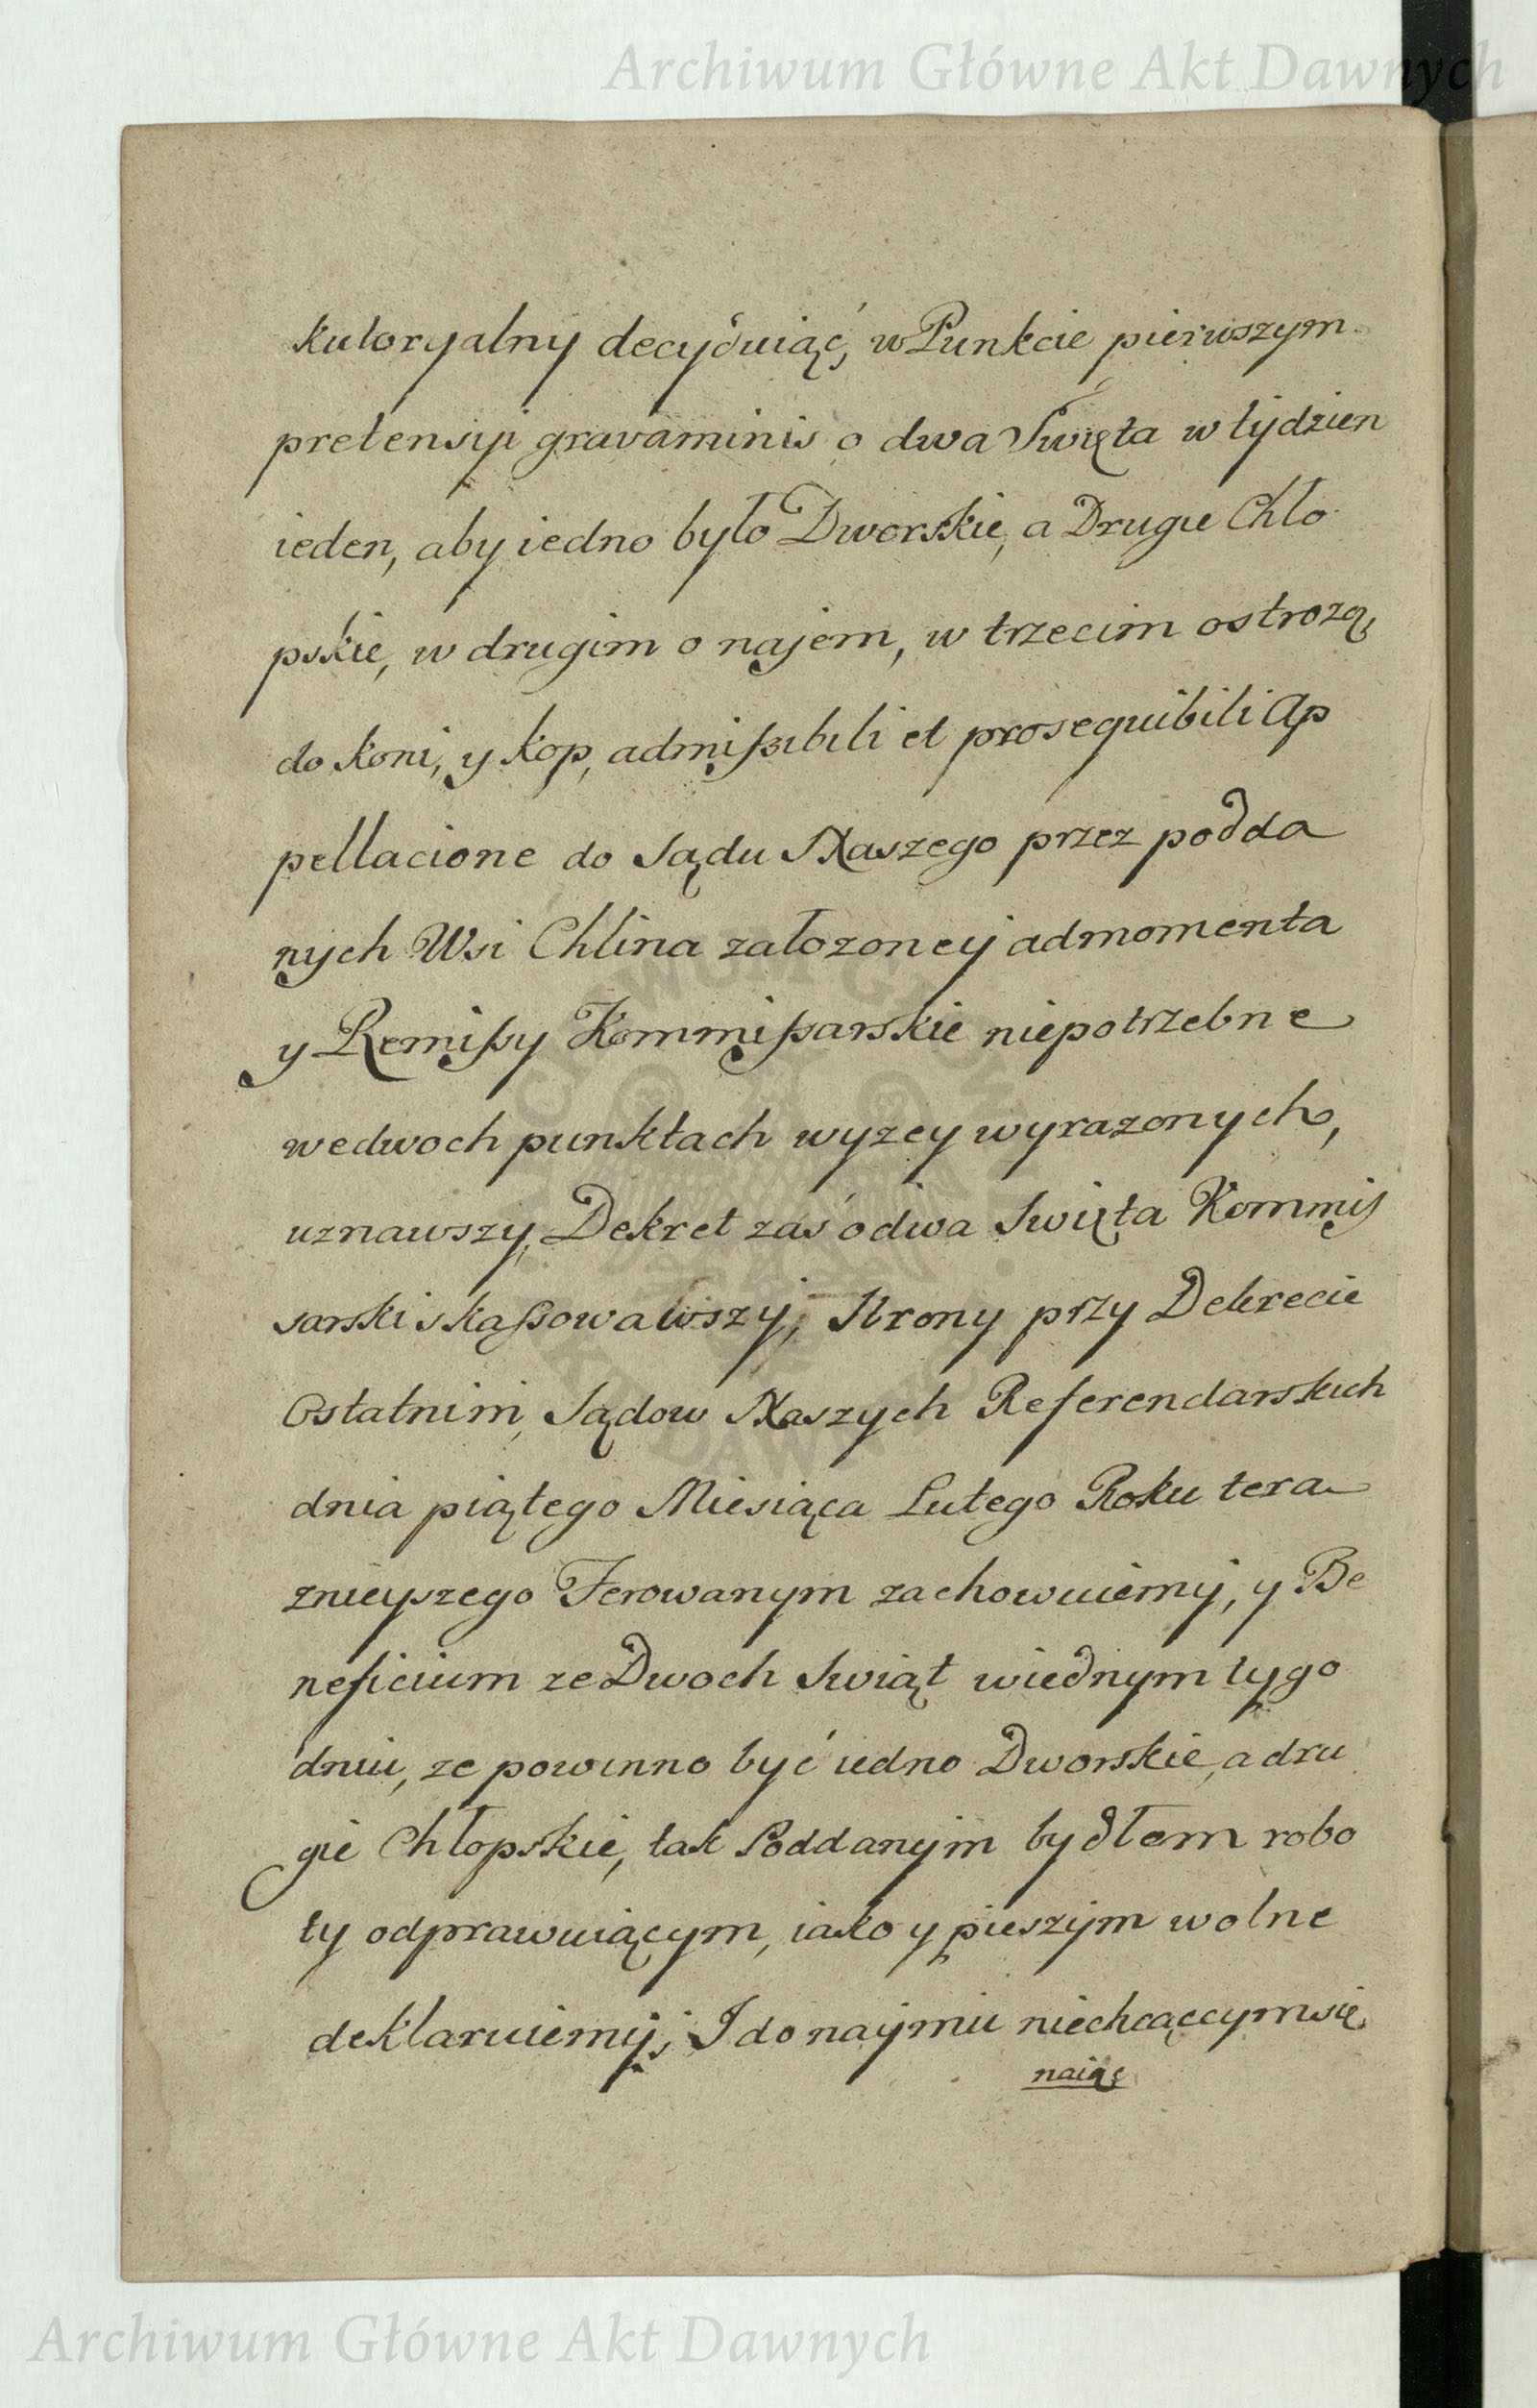 Archiwum Główne Akt Dawnych
kutoryalny decyduiąć, w Punkcie pierwszym
pretensyi gravaminis o dwa Swięta w tydzien
ieden, aby iedno było Dworskie, a Drugie Chło
pskie, w drugim o najem, w trzecim o strozą
do koni, y kop, admißibili et prosequibili Ap
pellacione do Sądu Naszego przez podda
nych Wsi Chlina załozoney ad momenta
y Remißy Kommißarskie niepotrzebne
wedwoch punktach wyzey wyrazonych,
uznawszy, Dekret zaś o dwa Swięta Kommis
sarski skaßowawszy, Strony przy Dekrecie
Ostatnim, Sądow Naszych Referendarskich
dnia piątego Miesiąca Lutego Roku tera
znieyszego Ferowanym zachowuiemy, y Be
neficium ze Dwoch Swiąt wiednym tygo
dniu, ze powinno być iedno Dworskie, a dru
gie Chłopskie, tak Poddanym bydłem robo
ty odprawuiącym, iako y pieszym wolne
deklaruiemy; I do naymu niechcąccym się
naiąć
Archiwum Główne Akt Dawnych